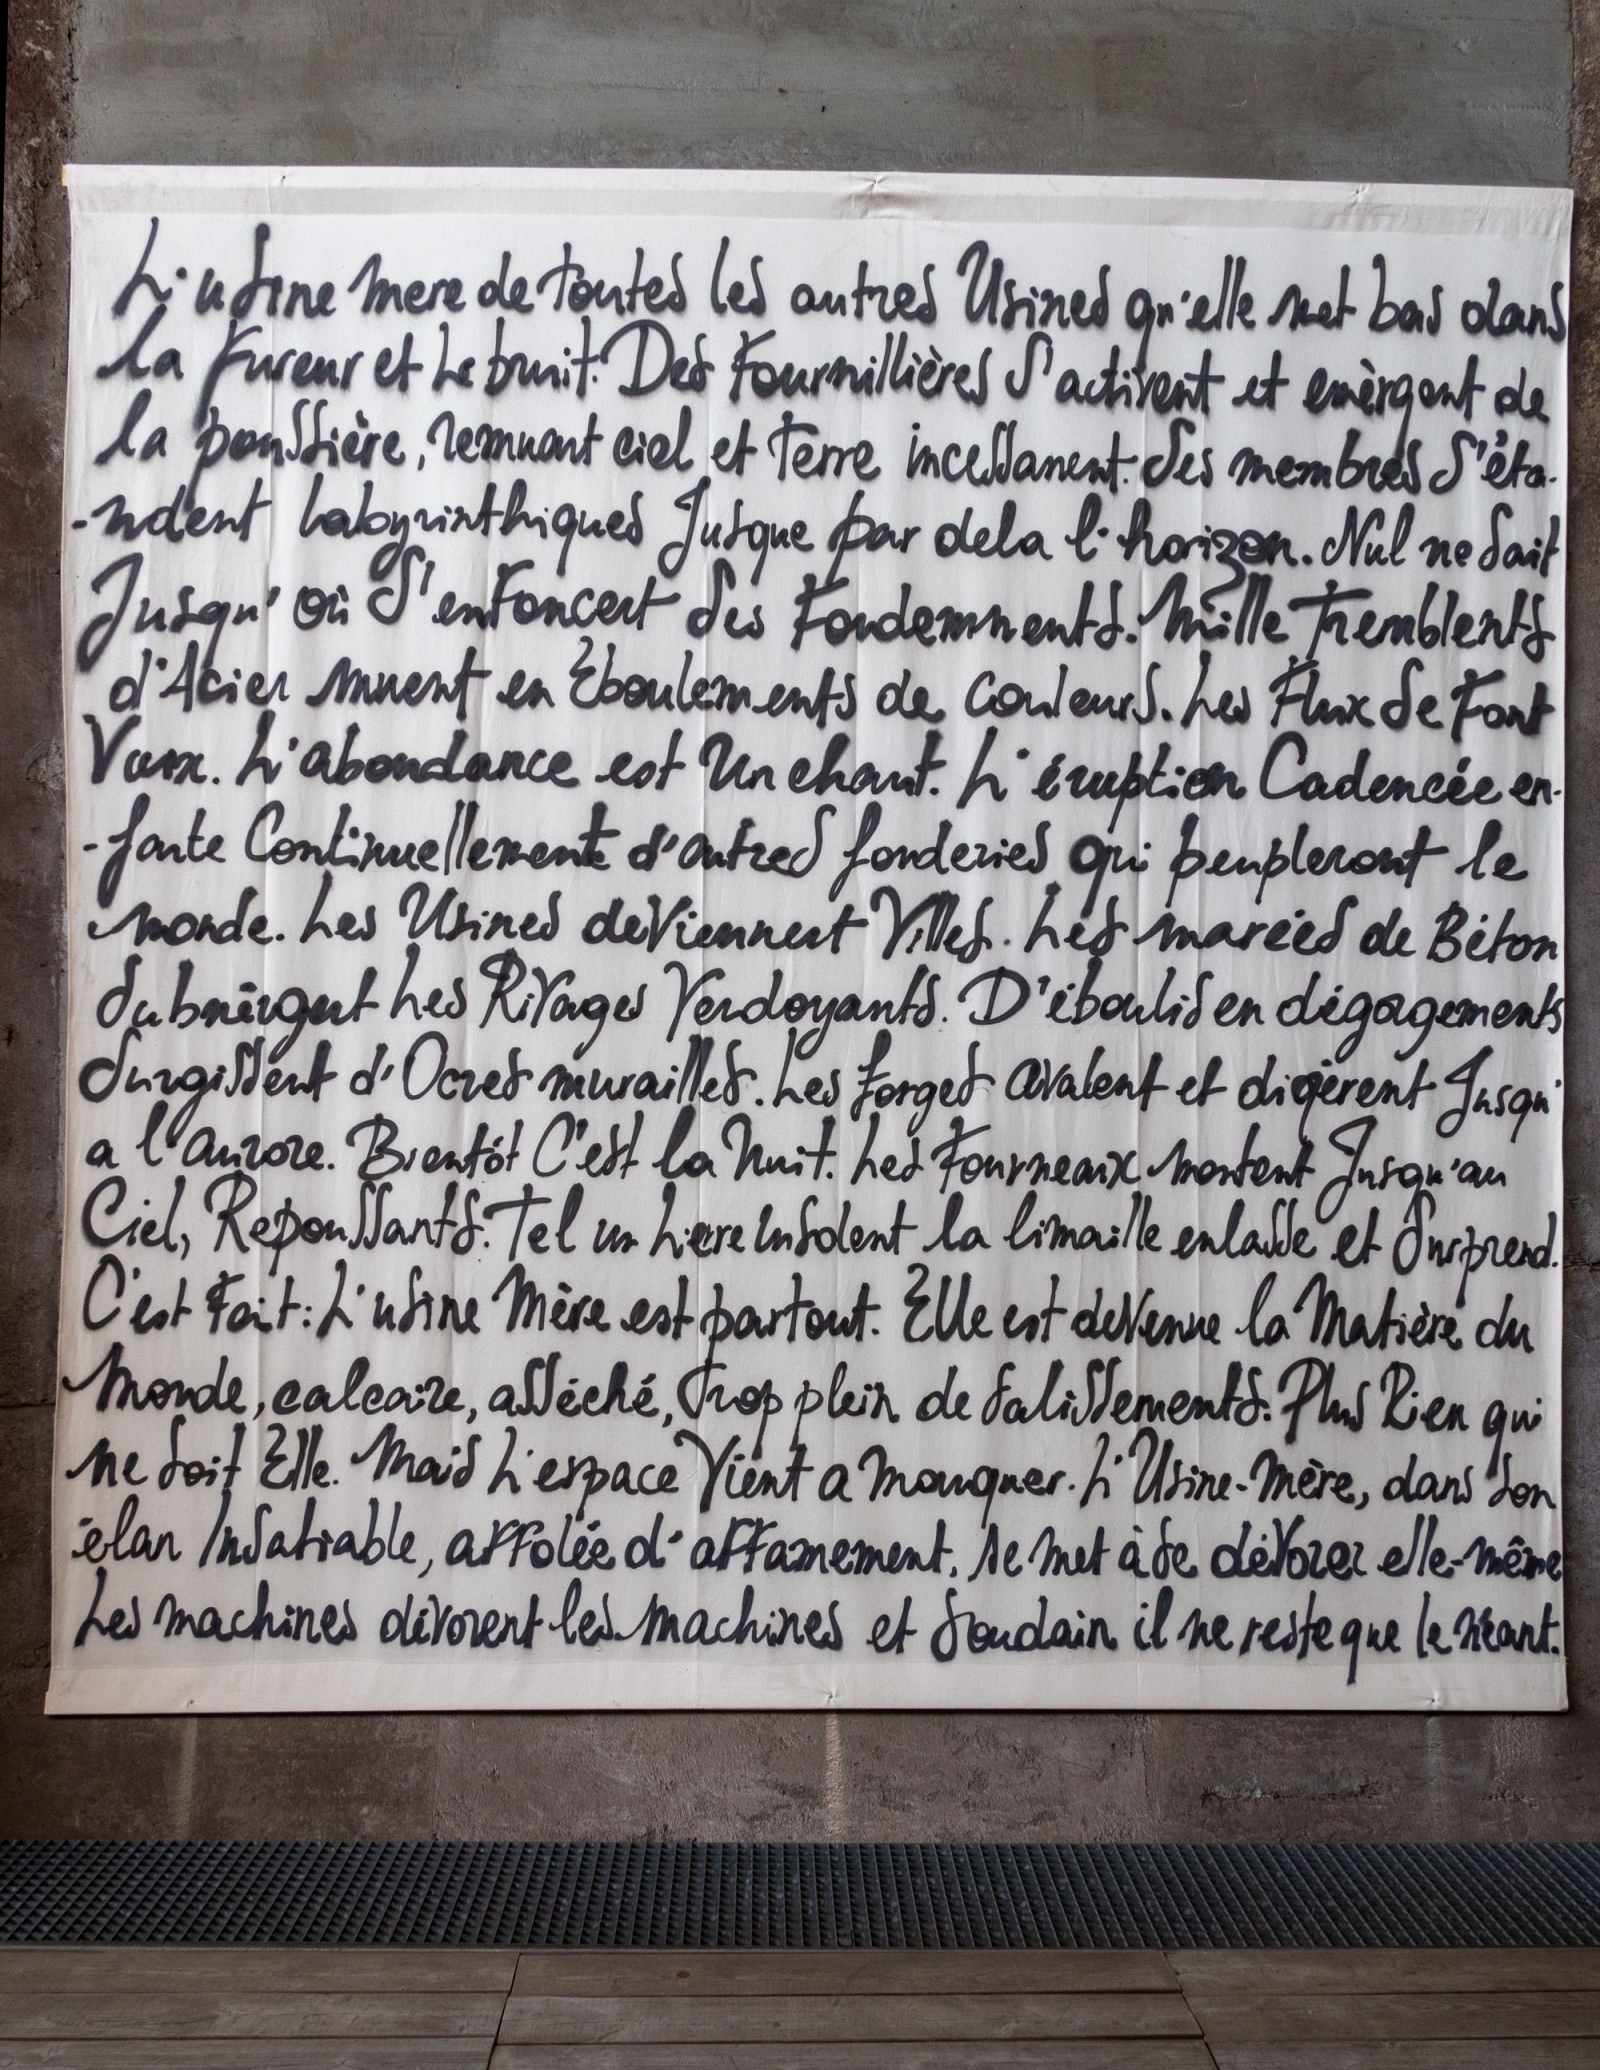 L'usine mere de toutes les autres Usines qu'elle met bas dans
la Fureur et Le bruit. Des Fourmillières S'activent et emèrgent de
la poussière, remuant ciel et Terre incessament. Ses membres S'éta-
-ndent labyrinthiques Jusque par dela l'horizon. Nul ne Sait
Jusqu' où S'enfoncent Ses Fondemments. Mille Tremblents
d'Acier muent en Eboulements de Couleurs. Les Flux Se Font
Voix. L'abondance est Un chant. L'éruption Cadencée en-
-fante Continuellement d'autres fonderies qui peupleront le
monde. Les Usines deViennent Villes. Les marées de Béton
Submèrgent Les RiVages Verdoyants. D'éboulis en dégagements
Surgissent d'Ocres murailles. Les Forges aValent et digèrent Jusqu'
a l'aurore. Bientôt C'est la Nuit. Les Fourneaux montent Jusqu'au
Ciel, Repoussants. Tel un Lierre Insolent la limaille enlasse et Surprend.
C'est Fait: L'usine Mère est partout. Elle est deVenue la Matière du
Monde, calcaire, asséché, Trop plein de Salissements. Plus Rien qui
ne Soit Elle. Mais L'espace Vient a Manquer. L'Usine-Mère, dans Son
élan Insatiable, affolée d'affamement, se met à Se déVorer elle-même
Les machines déVorent les machines et Soudain il ne reste que le néant.